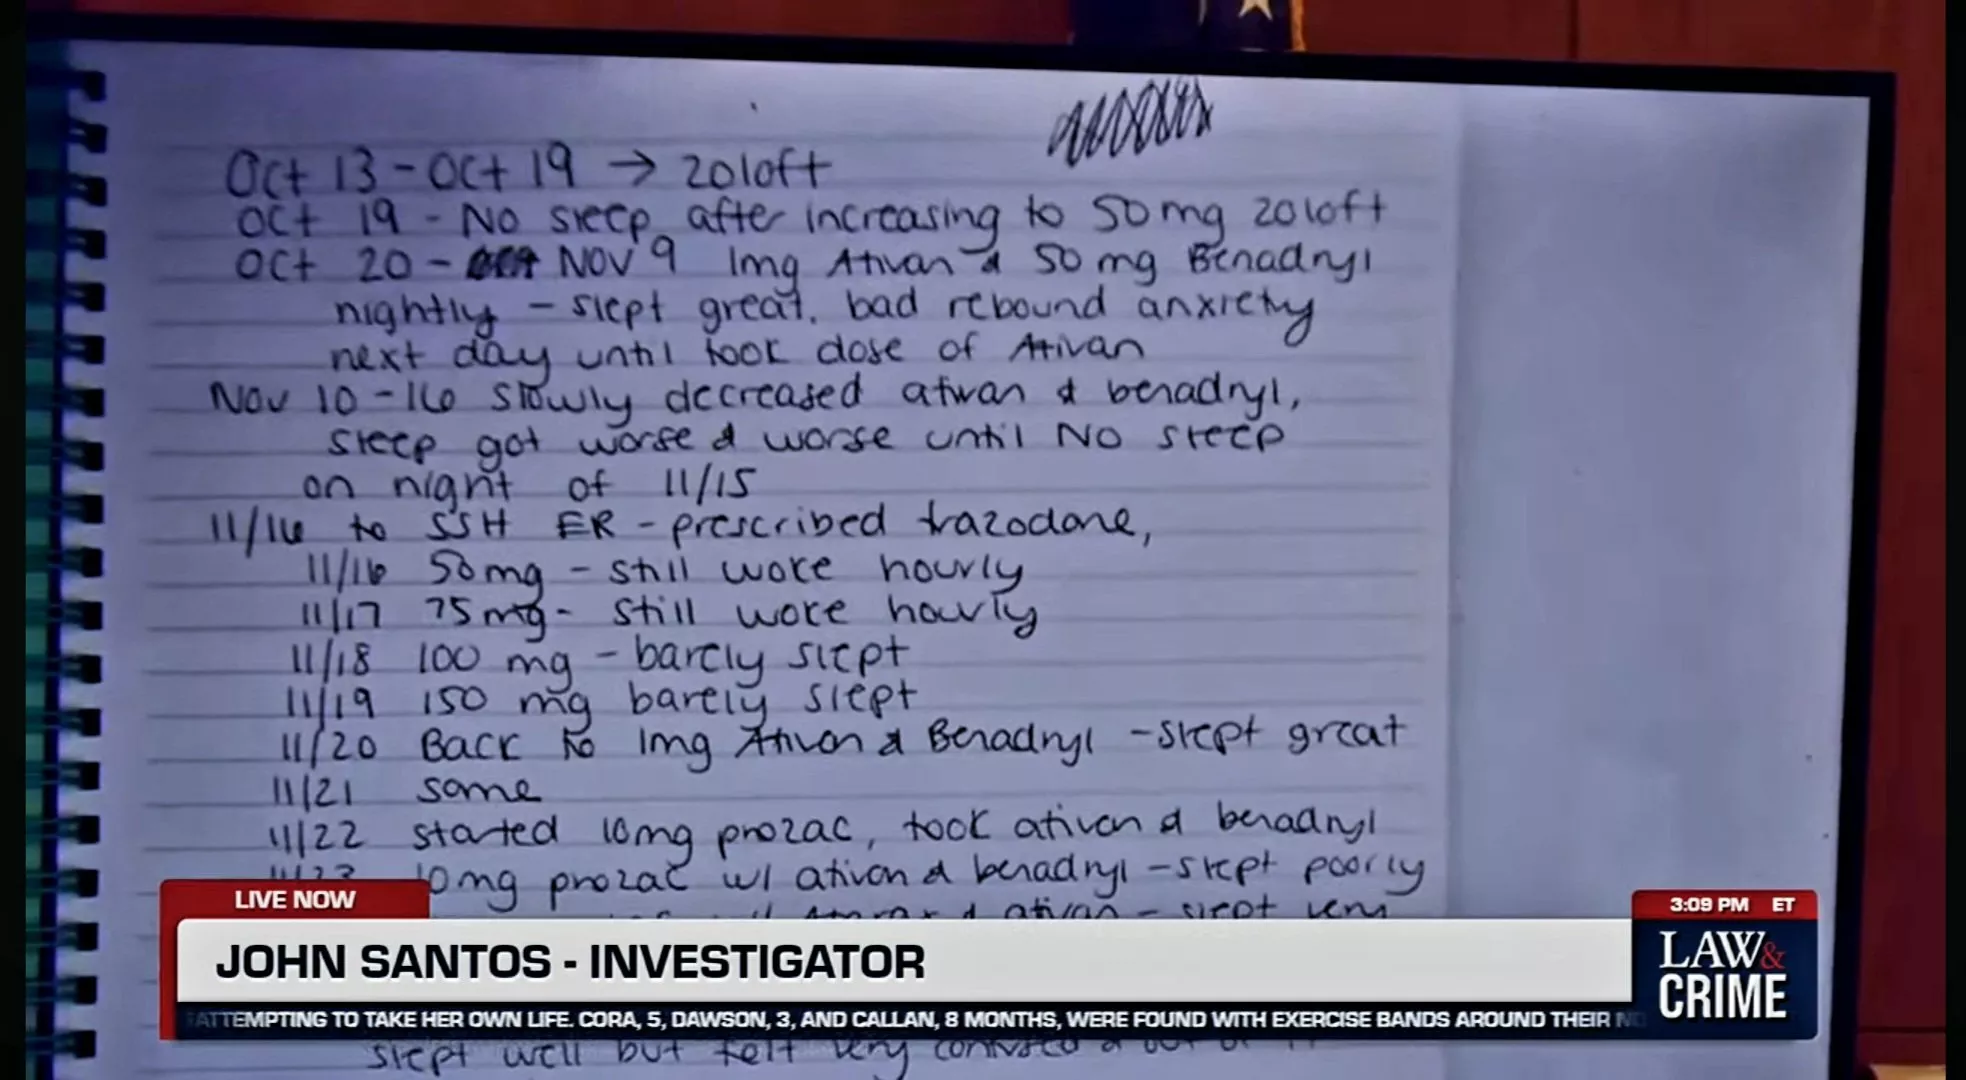 Oct 13 - Oct 19 → Zoloft
Oct 19 - No sleep after increasing to 50mg Zoloft
Oct 20 - Nov 9 1mg Ativan & 50mg Benadryl
nightly - slept great. bad rebound anxiety
next day until took dose of Ativan
Nov 10 - 16 slowly decreased ativan & benadryl,
sleep got worse & worse until No sleep
on night of 11/15
11/16 to SSH ER - prescribed trazodone,
11/16 50mg - still woke hourly
11/17 75mg - still woke hourly
11/18 100 mg - barely slept
11/19 150 mg barely slept
11/20 Back to 1mg Ativan & Benadryl - slept great
11/21 same
11/22 started 10mg prozac, took ativan & benadryl
11/23 10mg prozac w/ ativan & benadryl - slept poorly
& ativan - slept very
LIVE NOW
JOHN SANTOS - INVESTIGATOR
3:09 PM ET
LAW & CRIME
ATTEMPTING TO TAKE HER OWN LIFE. CORA, 5, DAWSON, 3, AND CALLAN, 8 MONTHS, WERE FOUND WITH EXERCISE BANDS AROUND THEIR
slept well but felt very confused &